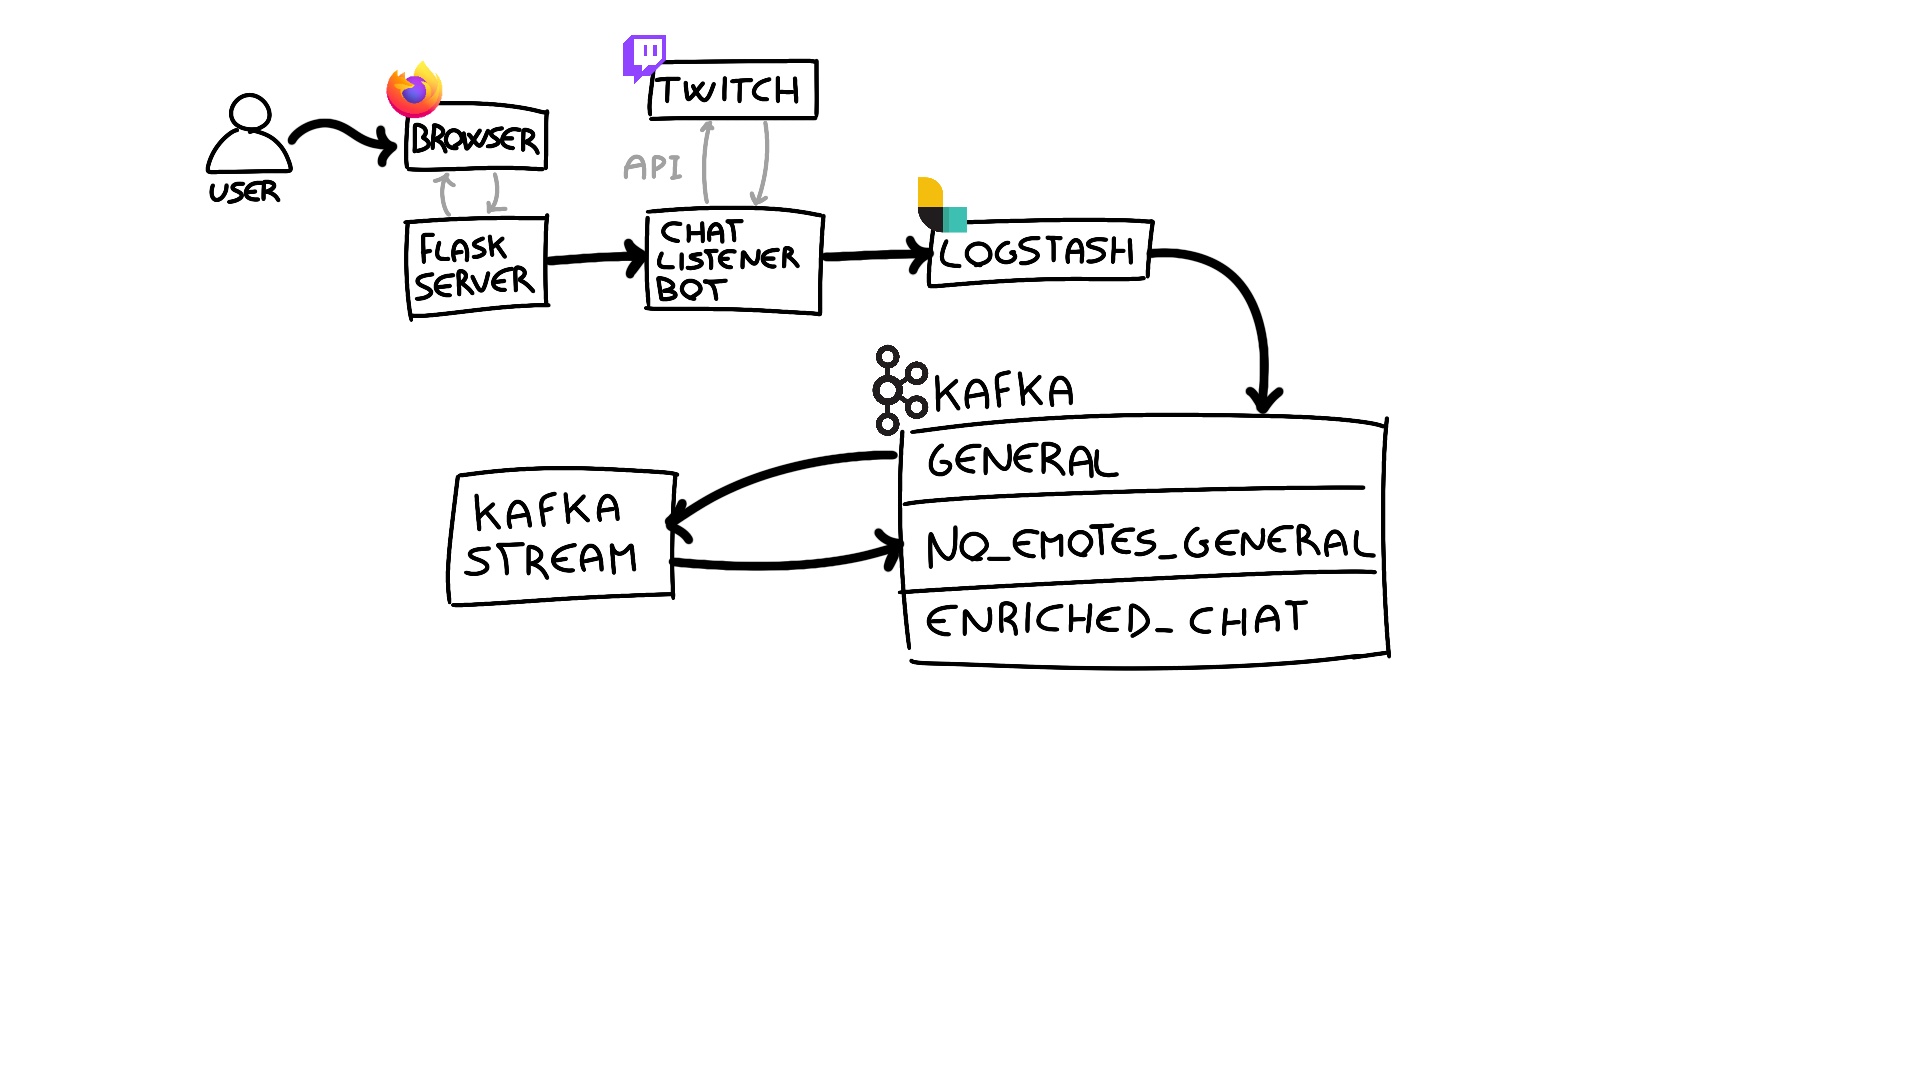 TWITCH
BROWSER
USER
API
FLASK
SERVER
CHAT
LISTENER
BOT
LOGSTASH
KAFKA
GENERAL
NO_EMOTES_GENERAL
ENRICHED_CHAT
KAFKA
STREAM